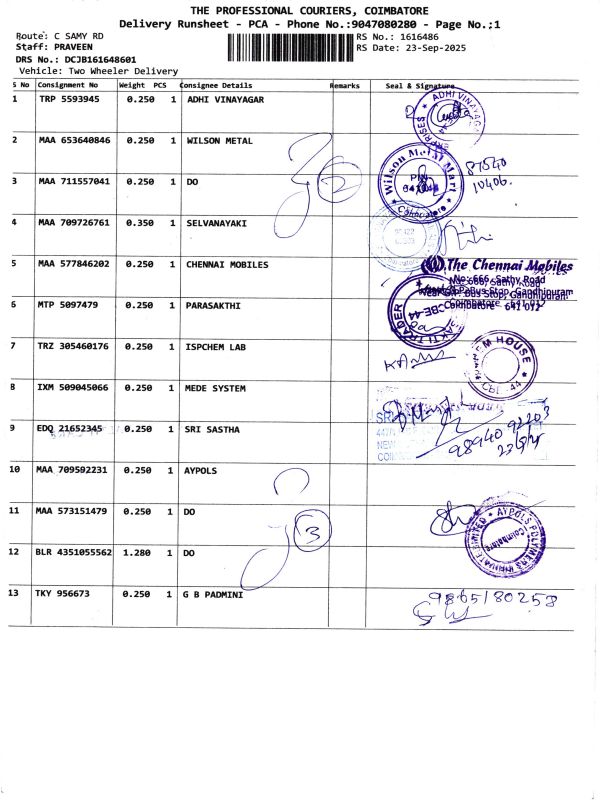 THE PROFESSIONAL COURIERS, COIMBATORE
Delivery Runsheet - PCA - Phone No.:9047080280 - Page No.;1
Route: C SAMY RD RS No.: 1616486
Staff: PRAVEEN RS Date: 23-Sep-2025
DRS No.: DCJB161648601
Vehicle: Two Wheeler Delivery
S No Consignment No Weight PCS Consignee Details Remarks Seal & Signature
1 TRP 5593945 0.250 1 ADHI VINAYAGAR
ADHI VINAYAGA
2 MAA 653640846 0.250 1 WILSON METAL
Wilson Metal Mart
Coimbatore
87540
10406.
3 MAA 711557041 0.250 1 DO
2
4 MAA 709726761 0.350 1 SELVANAYAKI
5 MAA 577846202 0.250 1 CHENNAI MOBILES
The Chennai Mobiles
No: 666, Sathy Road
Bus Stop, Gandhipuram
Coimbatore - 641 012
6 MTP 5097479 0.250 1 PARASAKTHI
CBE-44
7 TRZ 305460176 0.250 1 ISPCHEM LAB
EM HOUSE
8 IXM 509045066 0.250 1 MEDE SYSTEM
9 EDQ 21652345 0.250 1 SRI SASTHA
98940 92203
10 MAA 709502231 0.250 1 AYPOLS
11 MAA 573151479 0.250 1 DO
3
AYPOLS POLYMERS PRIVATE LIMITED
Coimbatore
12 BLR 4351055562 1.280 1 DO
13 TKY 956673 0.250 1 G B PADMINI
9865180258